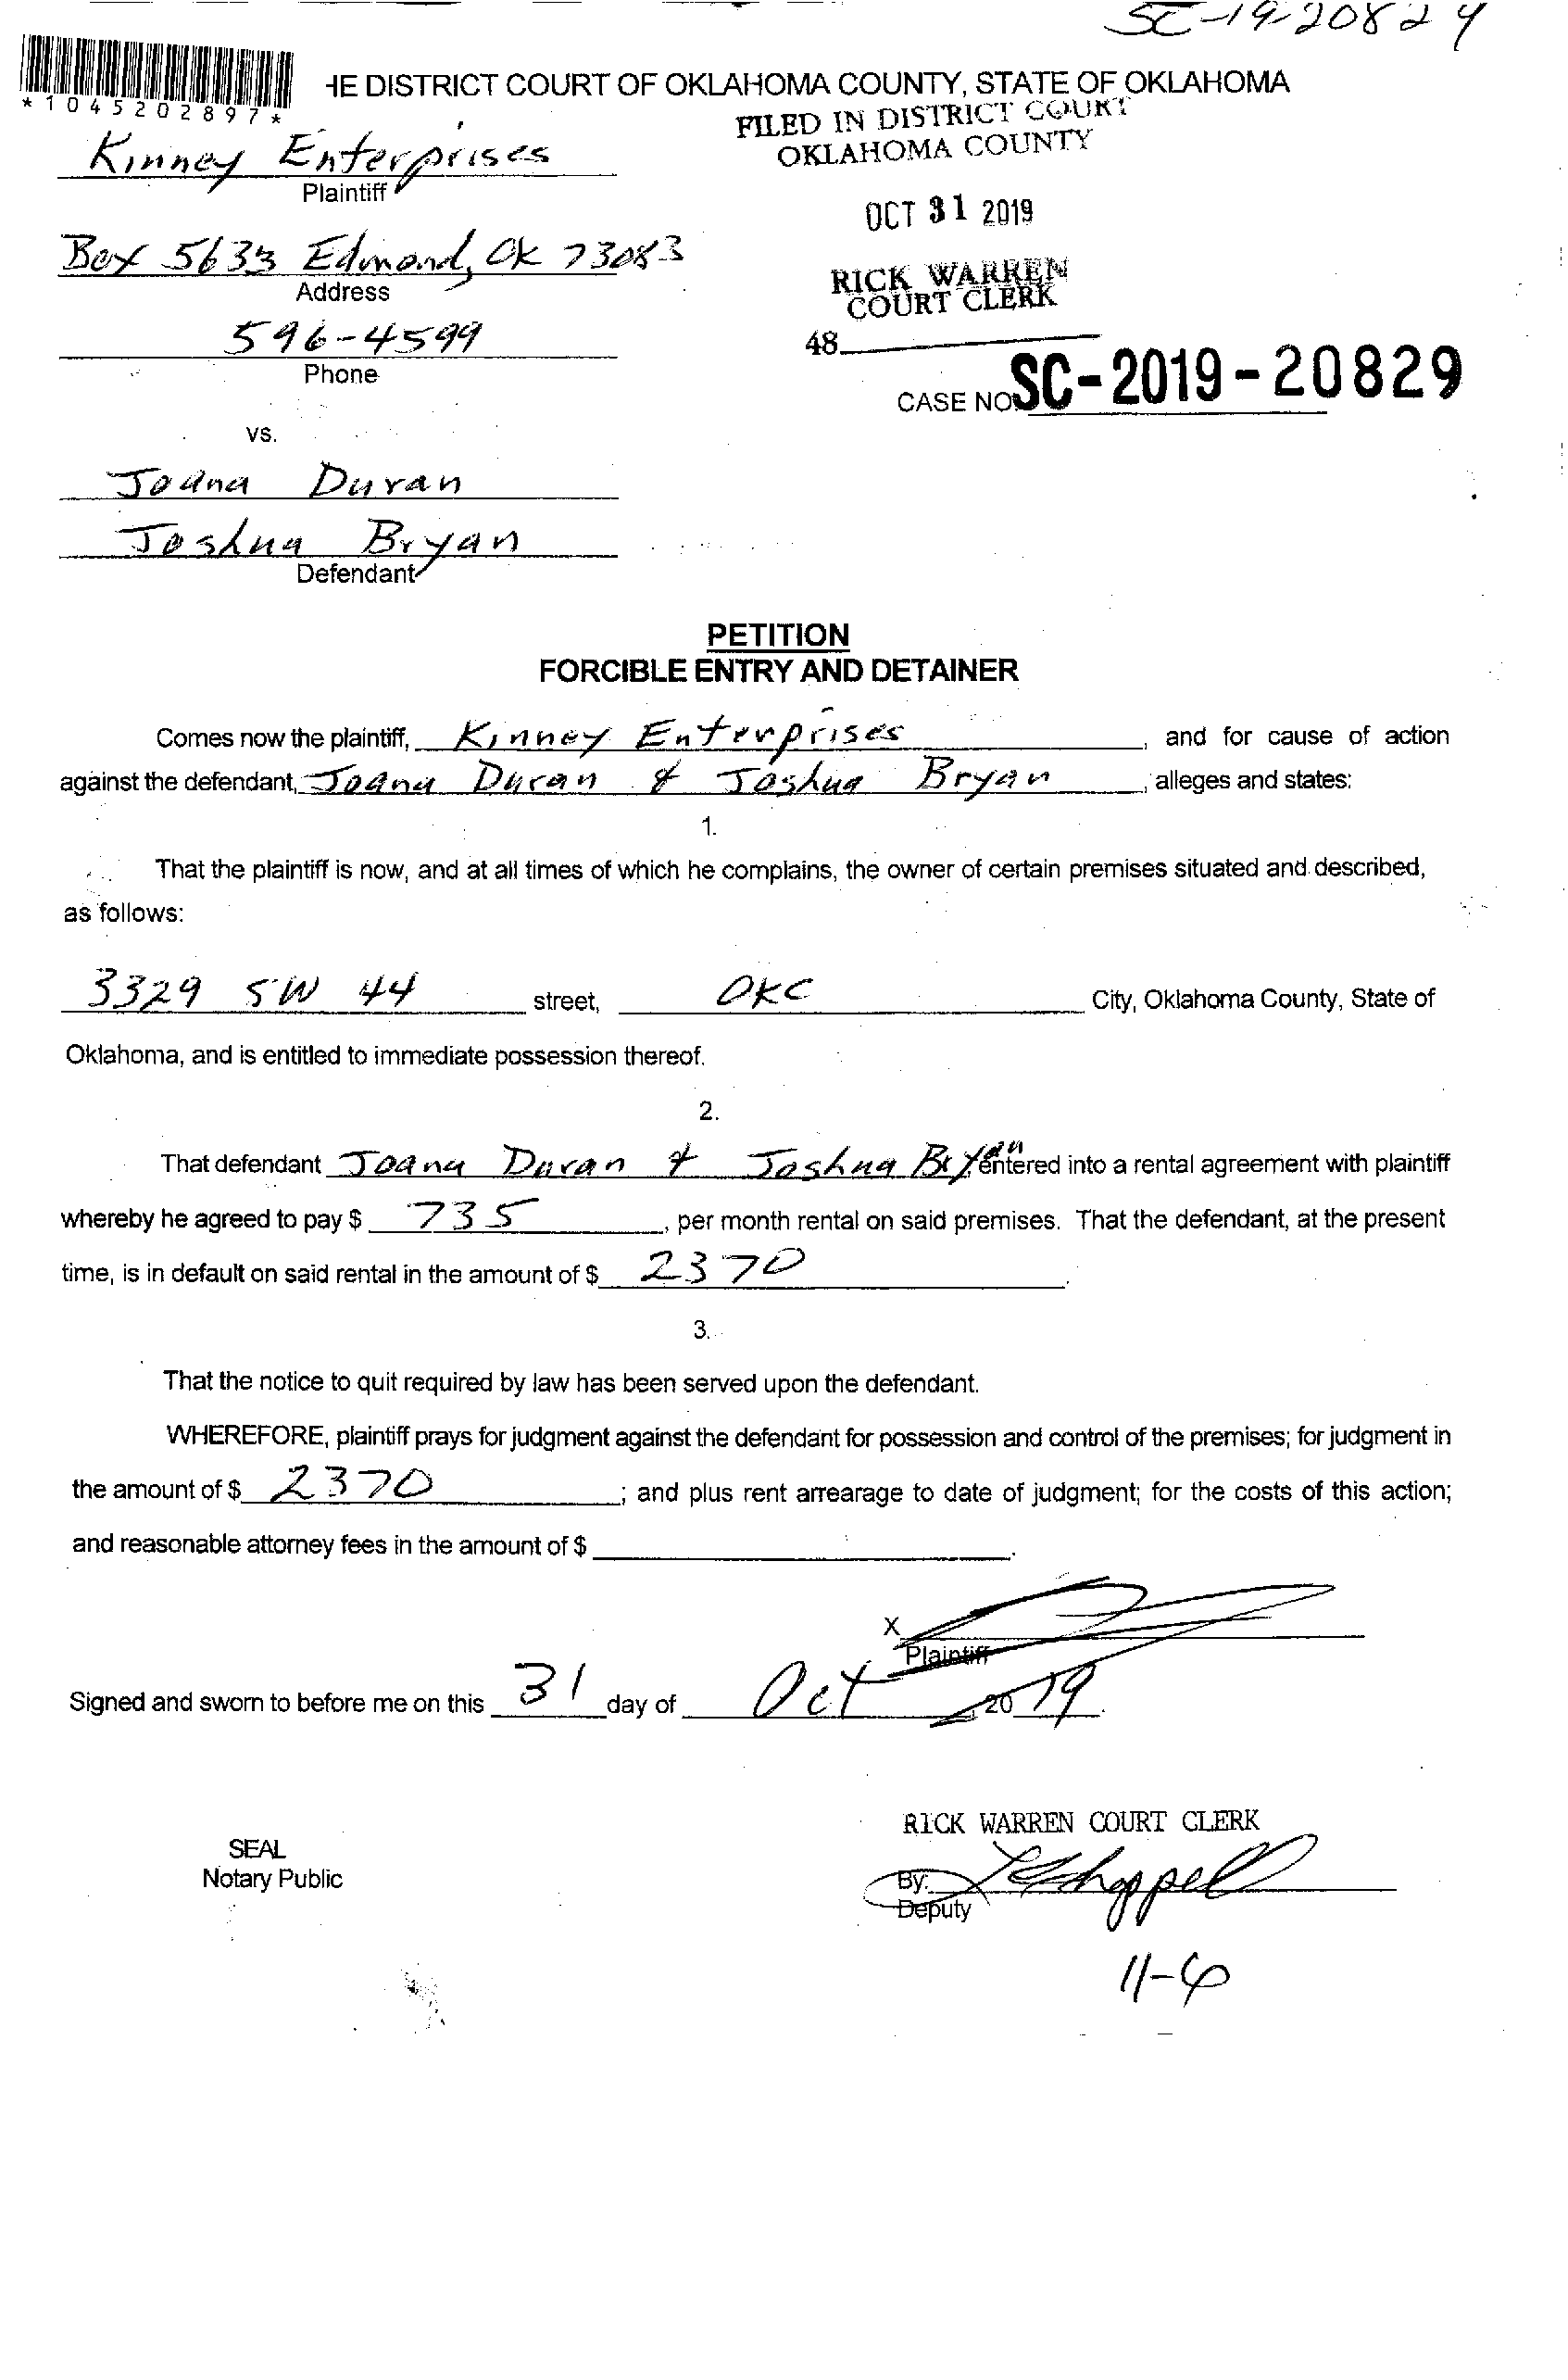 SC-19-20829
*1045202897*
HE DISTRICT COURT OF OKLAHOMA COUNTY, STATE OF OKLAHOMA
FILED IN DISTRICT COURT
OKLAHOMA COUNTY
Kinney Enterprises
Plaintiff
OCT 31 2019
Box 5633 Edmond, OK 73083
Address
RICK WARREN
COURT CLERK
596-4599
Phone
48
CASE NO. SC-2019-20829
vs.
Joana Duran
Joshua Bryan
Defendant
PETITION
FORCIBLE ENTRY AND DETAINER
Comes now the plaintiff, Kinney Enterprises, and for cause of action
against the defendant, Joana Duran & Joshua Bryan, alleges and states:
1.
That the plaintiff is now, and at all times of which he complains, the owner of certain premises situated and described,
as follows:
3329 SW 44 street, OKC City, Oklahoma County, State of
Oklahoma, and is entitled to immediate possession thereof.
2.
That defendant Joana Duran & Joshua Bryan entered into a rental agreement with plaintiff
whereby he agreed to pay $ 735, per month rental on said premises. That the defendant, at the present
time, is in default on said rental in the amount of $ 2370.
3.
That the notice to quit required by law has been served upon the defendant.
WHEREFORE, plaintiff prays for judgment against the defendant for possession and control of the premises; for judgment in
the amount of $ 2370; and plus rent arrearage to date of judgment; for the costs of this action;
and reasonable attorney fees in the amount of $ .
X
Plaintiff
Signed and sworn to before me on this 31 day of Oct, 2019.
RICK WARREN COURT CLERK
SEAL
Notary Public
By:
Deputy
11-6